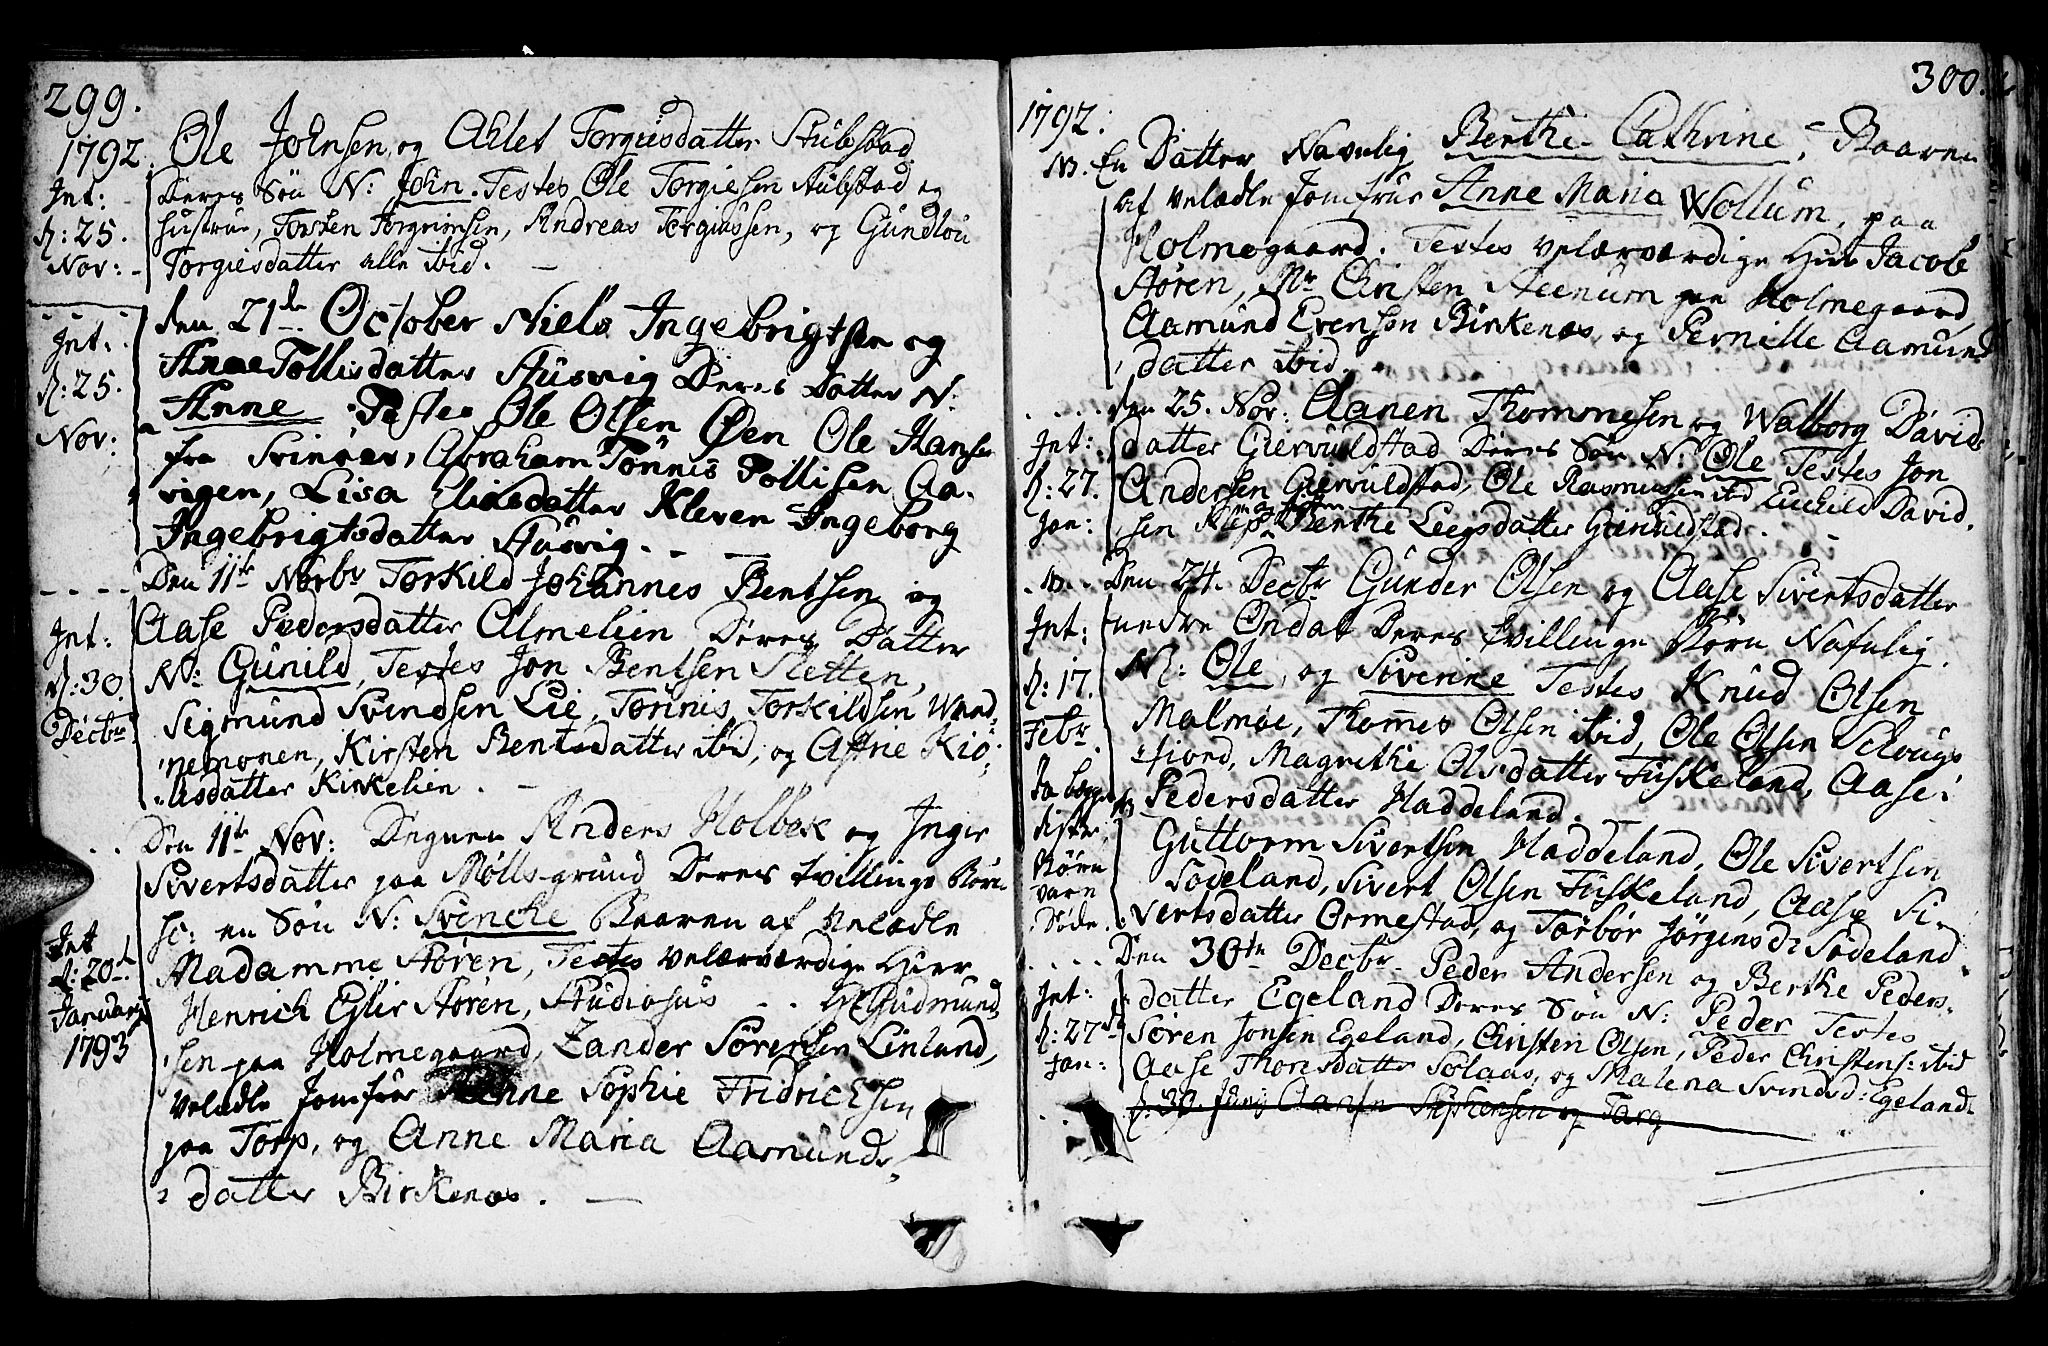 299.
1792.
Ole Johnsen og Ahlet Torgiusdatter Stubstad
Int:
d: 25.
Nov:
Deres Søn N: John. Testes Ole Torgiesen Stubstad og
hustrue, Torsten Torgrimsen, Andreas Torgiussen, og Gundlou
Torgiesdatter alle ibid.
Int:
d: 25.
Nov:
den 21de October Niels Ingebrigtsen og
Anne Tollisdatter Stusvig Deres Datter N:
Anne Testes Ole Olsen Øen Ole Hansen
fra Svinøer, Abraham Tønnis Tollisen Aa-
vigen, Lisa Eliasdatter Kleven Ingeborg
Ingebrigtsdatter Stusvig.
Int:
d: 30.
Decbr.
Den 11te Novbr Torkild Johannes Bentsen og
Aase Pedersdatter Almelien Deres Datter
N: Gunild, Testes Jon Bentsen Sletten,
Sigmund Svendsen Lie, Tønnis Torkildsen Wand-
nemonen, Kirsten Bentsdatter ibid, og Anne Kiø-
lisdatter Kirkelien.
Int
d: 20de
Januarj
1793
Den 11te Nov: Degnen Anders Holbek og Inger
Sivertsdatter paa Møllegrund Deres tvillinge Børn
so: en Søn N: Svenche Baaren af Velædle
Madamme Støren, Testes Velærværdige Herr
Henrich Egler Støren, Studiosus - - Gudmund
sen paa Holmegaard, Zander Sørensen Linland,
Velædle Jomfrue Hanne Sophie Fridrichsen
paa Torp, og Anne Maria Aamunds-
datter Birkenæs.
300.
1792.
NB. En Datter Navnlig Berthe Cathrine, Baaren
af Velædle Jomfrue Anne Maria Wollum, paa
Holmegaard. Testes Velærværdige Herr Jacob
Støren, Mr Christen Steenum paa Holmegaard,
Aamund Evensen Birkenæs, og Pernille Aamunds
datter ibid.
Int:
d: 27.
Jan:
den 25. Nov: Aanen Thommesen og Walborg Davids
datter Giervoldstad Deres Søn N: Ole Testes Jon
Andersen Giervoldstad, Ole Rasmussen ibd Euchild David
sen Klep. Berthe Leegsdatter Giervoldstad.
NB.
Int:
d: 17.
Febr.
Den 24. Decbr Gunder Olsen og Aase Sivertsdatter
nedre Øndal Deres tvillinge Børn Nafnlig.
N: Ole, og Siverine Testes Knud Olsen
Malmøe, Thommes Olsen ibid, Ole Olsen
fiord, Magrethe Olsdatter Fuskeland, Aase
Pedersdatter Haddeland.
Børn
vare
Døde
Guttorm Sivertsen Haddeland, Ole Sivertsen
Sodeland, Sivert Olsen Fuskeland, Aase Si-
vertsdatter Ormestad, og Torbor Jørgensd: Sodeland.
Int:
d: 27de
Jan:
Den 30te Decbr. Peder Andersen og Berthe Peders-
datter Egeland Deres Søn N: Peder Testes
Søren Jonsen Egeland, Christen Olsen, Peder Christens: ibid
Aase Thorisdatter Solaas, og Malena Svendsd: Egeland.
d. 30. Junj Aasen Stephensen og Targ